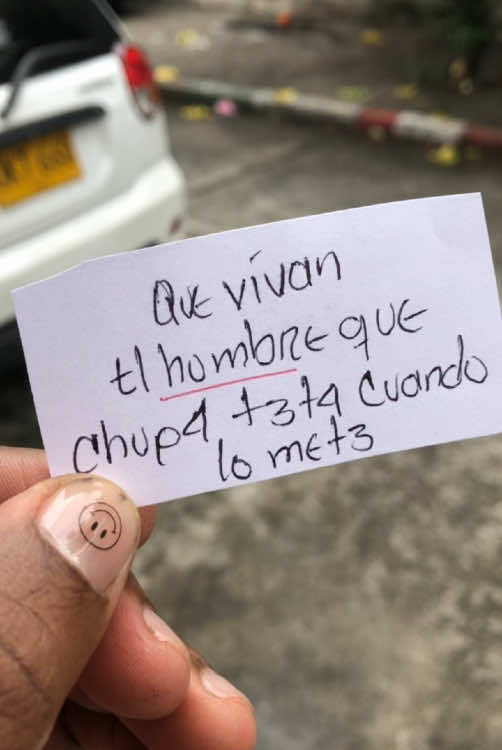 Que vivan
El hombre que
chup4 t3t4 Cuando
lo met3